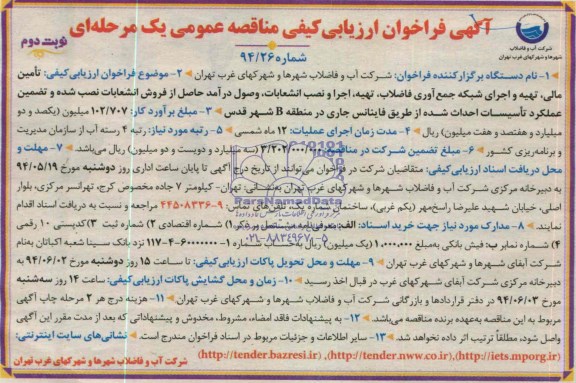 آگهی فراخوان ارزیابی کیفی مناقصه عمومی یک مرحله‌ای
نوبت دوم
شرکت آب و فاضلاب
شهرها و شهرکهای غرب تهران
شماره ۹۴/۲۶
۱- نام دستگاه برگزارکننده فراخوان: شرکت آب و فاضلاب شهرها و شهرکهای غرب تهران ۲- موضوع فراخوان ارزیابی کیفی: تأمین
مالی، تهیه و اجرای شبکه جمع‌آوری فاضلاب، تهیه، اجرا و نصب انشعابات، وصول درآمد حاصل از فروش انشعابات نصب شده و تضمین
عملکرد تأسیسات احداث شده از طریق فاینانس جاری در منطقه B شهر قدس ۳- مبلغ برآورد کار: ۱۰۲/۷۰۷ میلیون (یکصد و دو
میلیارد و هفتصد و هفت میلیون) ریال ۴- مدت زمان اجرای عملیات: ۱۲ ماه شمسی ۵- رتبه مورد نیاز: رتبه ۴ رسته آب از سازمان مدیریت
و برنامه‌ریزی کشور ۶- مبلغ تضمین شرکت در مناقصه: (سه میلیارد و دویست و دو میلیون) ریال می‌باشد. ۷- مهلت و
محل دریافت اسناد ارزیابی کیفی: متقاضیان شرکت در فراخوان می‌توانند از تاریخ درج آگهی تا پایان ساعت اداری روز دوشنبه مورخ ۹۴/۰۵/۱۹
به دبیرخانه مرکزی شرکت آب و فاضلاب شهرها و شهرکهای غرب تهران به‌نشانی: تهران- کیلومتر ۷ جاده مخصوص کرج، تهرانسر مرکزی، بلوار
اصلی، خیابان شهید علیرضا راسخ‌مهر (یکم غربی)، ساختمان شماره یک، تلفن‌های تماس: ۹-۴۴۵۰۸۳۳۶ مراجعه و نسبت به دریافت اسناد اقدام
نمایند. ۸- مدارک مورد نیاز جهت خرید اسناد: الف: شماره اقتصادی ۲) شماره ثبت ۳) کدپستی ۱۰ رقمی
۴) شماره نمابر ب: فیش بانکی به‌مبلغ ۱,۰۰۰,۰۰۰ (یک میلیون) ریال نزد بانک سینا شعبه اکباتان به‌نام
شرکت آبفای شهرها و شهرکهای غرب تهران ۹- مهلت و محل تحویل پاکات ارزیابی کیفی: تا ساعت ۱۵ روز دوشنبه مورخ ۹۴/۰۶/۰۲ به
دبیرخانه مرکزی شرکت آبفای شهرکهای غرب تهران در قبال اخذ رسید ۱۰- زمان و محل گشایش پاکات ارزیابی کیفی: ساعت ۱۴ روز سه‌شنبه
مورخ ۹۴/۰۶/۰۳ در دفتر قراردادها و بازرگانی شرکت آب و فاضلاب شهرها و شهرکهای غرب تهران ۱۱- هزینه درج هر ۲ مرحله چاپ آگهی
مربوط به این مناقصه به‌عهده برنده مناقصه می‌باشد. ۱۲- به پیشنهادات فاقد امضاء، مشروط، مخدوش و پیشنهاداتی که بعد از مدت مقرر این آگهی
واصل شود، مطلقاً ترتیب اثر داده نخواهد شد. ۱۳- سایر اطلاعات و جزئیات مربوط در اسناد فراخوان مندرج است. نشانی‌های سایت اینترنتی:
(http://tender.bazresi.ir) ,(http://tender.nww.co.ir),(http://iets.mporg.ir)
شرکت آب و فاضلاب شهرها و شهرکهای غرب تهران
ParsNamadData
۰۲۱-۸۸۳۴۹۶۷۰-۵